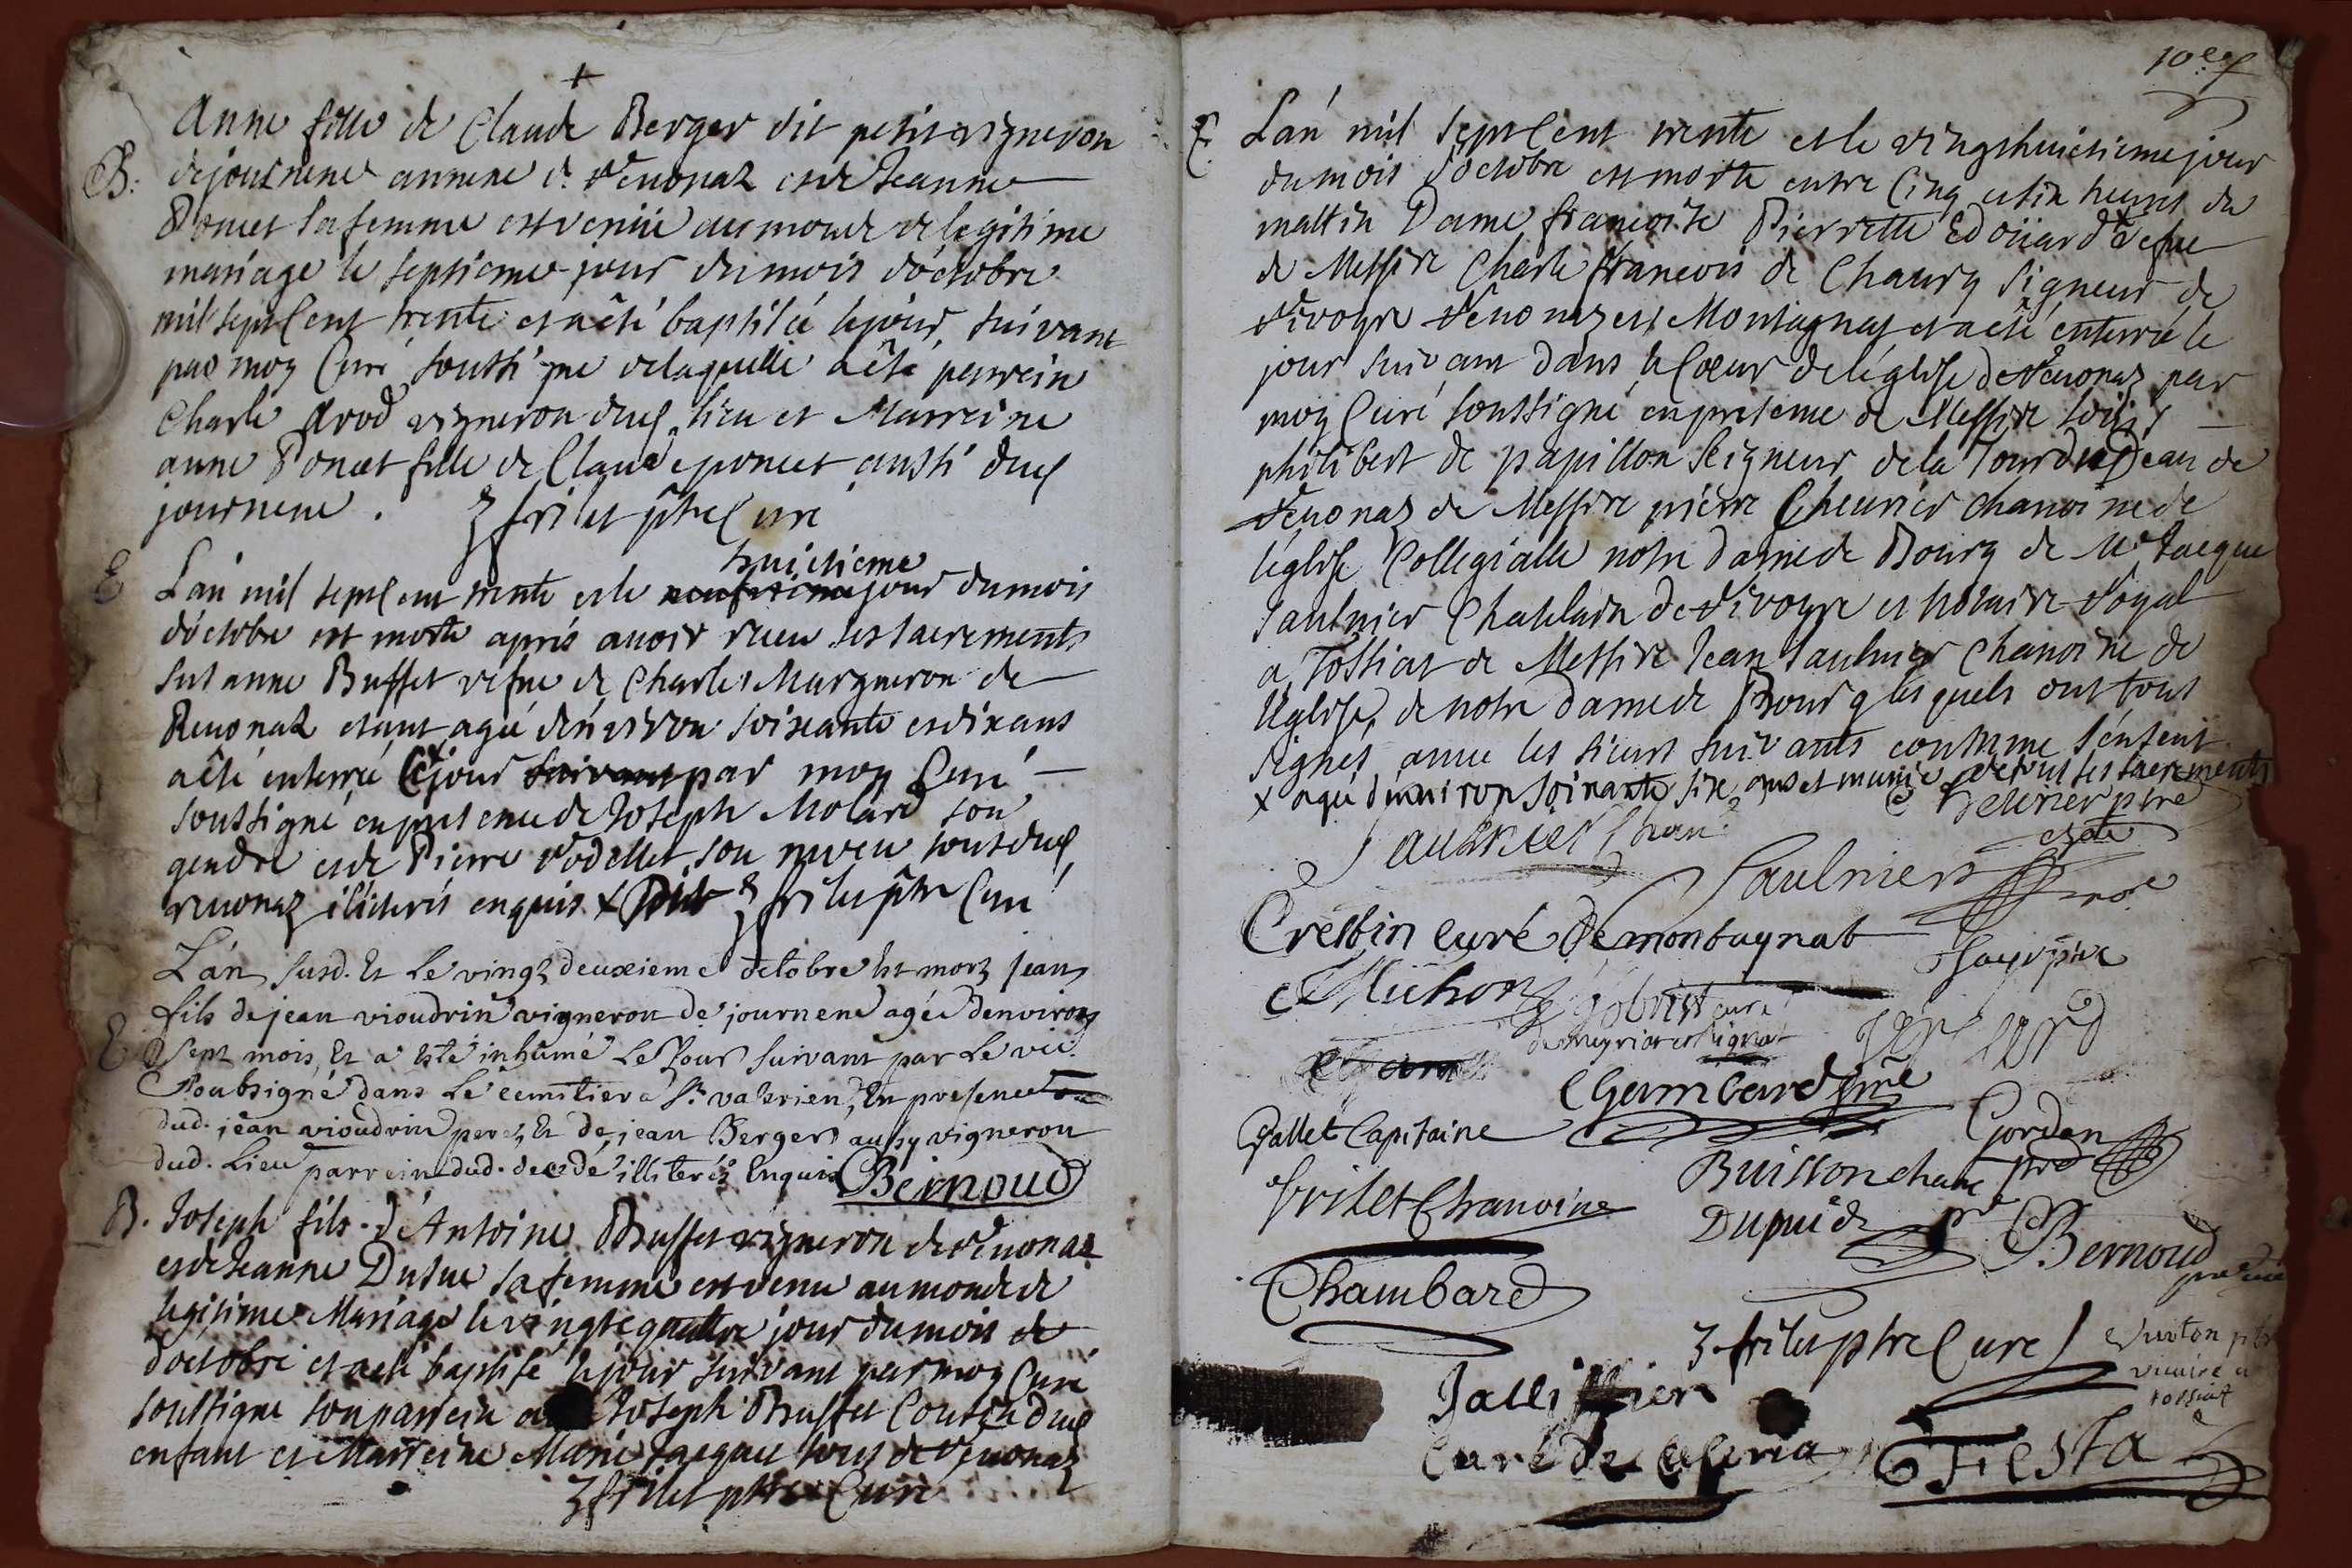 +
Anne fille de Claude Berger dit petit vigneron
B. de journene annexe d. Revonaz et de Jeanne
Poncet sa femme est veniie au monde de legitime
mariage le septieme jour du mois d'octobre
mil sept Cent trente et a êté baptisée le jour suivant
par moy Curé soussigné de laquelle a êté parrein
Charle Arod vigneron dud. lieu et Marreine
anne Poncet fille de Claude poncet aussi dud
journene. frilet ptre Curé
huictieme
E L'an mil sept cent trente et le jour du mois
d'octobre est morte aprés avoir receu les sacrements
Susanne Buffet vefue de Charles Margneron de
Revonaz etant agée d'environ soixante et dix ans
a êté enterrée le jour suivant par moy Curé
soussigné en presence de Joseph Molard son
gendre et de Pierre Rodellet son neveu tout dud
revonaz illiterés enquis frilet ptre Curé
L'an susd. Et Le vingt deuxieme octobre Est mort jean
fils de jean vioudrin vigneron de journene agée denviron
E sept mois, Et a Esté inhumé Le Jour suivant par Le vic.
soubsigné dans Le cemitiere St. valerien, En presence
dud. jean vioudrin pere, Et de jean Berger aussy vigneron
dud. Lieu parrein dud. decedé illiterés Enquis Bernoud
B. Joseph fils d'Antoine Buffet vigneron de Revonaz
et de Jeanne Dusue sa femme est venu au monde de
legitime Mariage le vingte quattre jour du mois de
d'octobre et a eté baptisé le jour suivant par moy Curé
soussigné son parrein a Joseph Buffet Cousin dud
enfant et Marreine Marie Jacquet tous de Revonaz
frilet ptre Curé
10e
E. L'an mil sept Cent trente et le vingthuictieme jour
du mois d'octobre est morte entre Cinq et six heures du
mattin Dame francoise Pierrette Edoüard vefue
de Messire Charle francois de Chaury signeur de
Rivoyre Revonaz et Montagnat et a eté enterrée le
jour suivant dans le Cœur de l'église de Revonaz par
moy Curé soussigné en presence de Messire loüis
philibert de papillon seigneur de la Tour de
Revonaz de Messire pierre Chevrier chanoine de
l'église Collegialle notre dame de Bourg de Me Jacque
saulnier Chatelain de Rivoyre et notaire Royal
a Tossiat de Messire Jean saulnier Chanoine de
l'église de notre dame de Bourg les quels ont tous
signés avec les sieurs suivants comme s'ensuit
x agée d'environ soixante six ans et munie de tous les sacrements
Chevrier ptre
Saulnier Chan.
Saulnier
Crestin curé de montagnat
Michon
Gobrist curé
Chambard
Gallet Capitaine
Gorden
ptre
Buisson chane
frilet Chanoine
Dupuide
Bernoud
Chambard
frilet ptre Curé
vicaire a
tossiat
Jallissier
Curé de
Festa